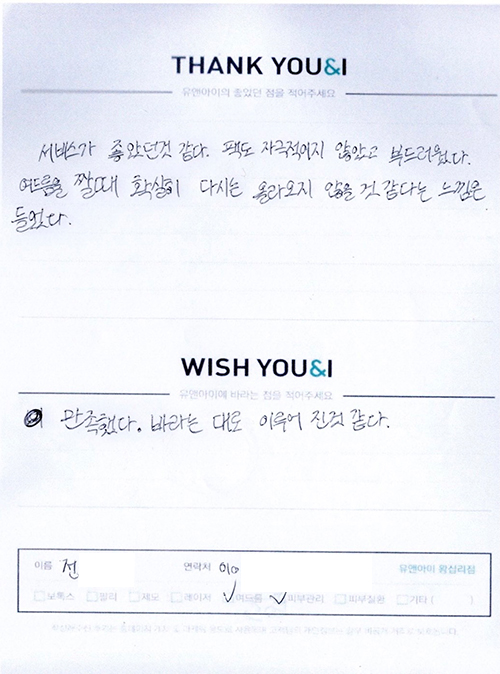 THANK YOU&I
유앤아이의 좋았던 점을 적어주세요
서비스가 좋았던것 같다. 팩도 자극적이지 않았고 부드러웠다.
여드름을 짤때 확실히 다시는 올라오지 않을 것 같다는 느낌은
들었다.
WISH YOU&I
유앤아이에 바라는 점을 적어주세요
만족했다. 바라는 대로 이루어 진것 같다.
이름 전 연락처 010 유앤아이 왕십리점
보톡스 필러 제모 레이저 여드름 피부관리 피부질환 기타 ( )